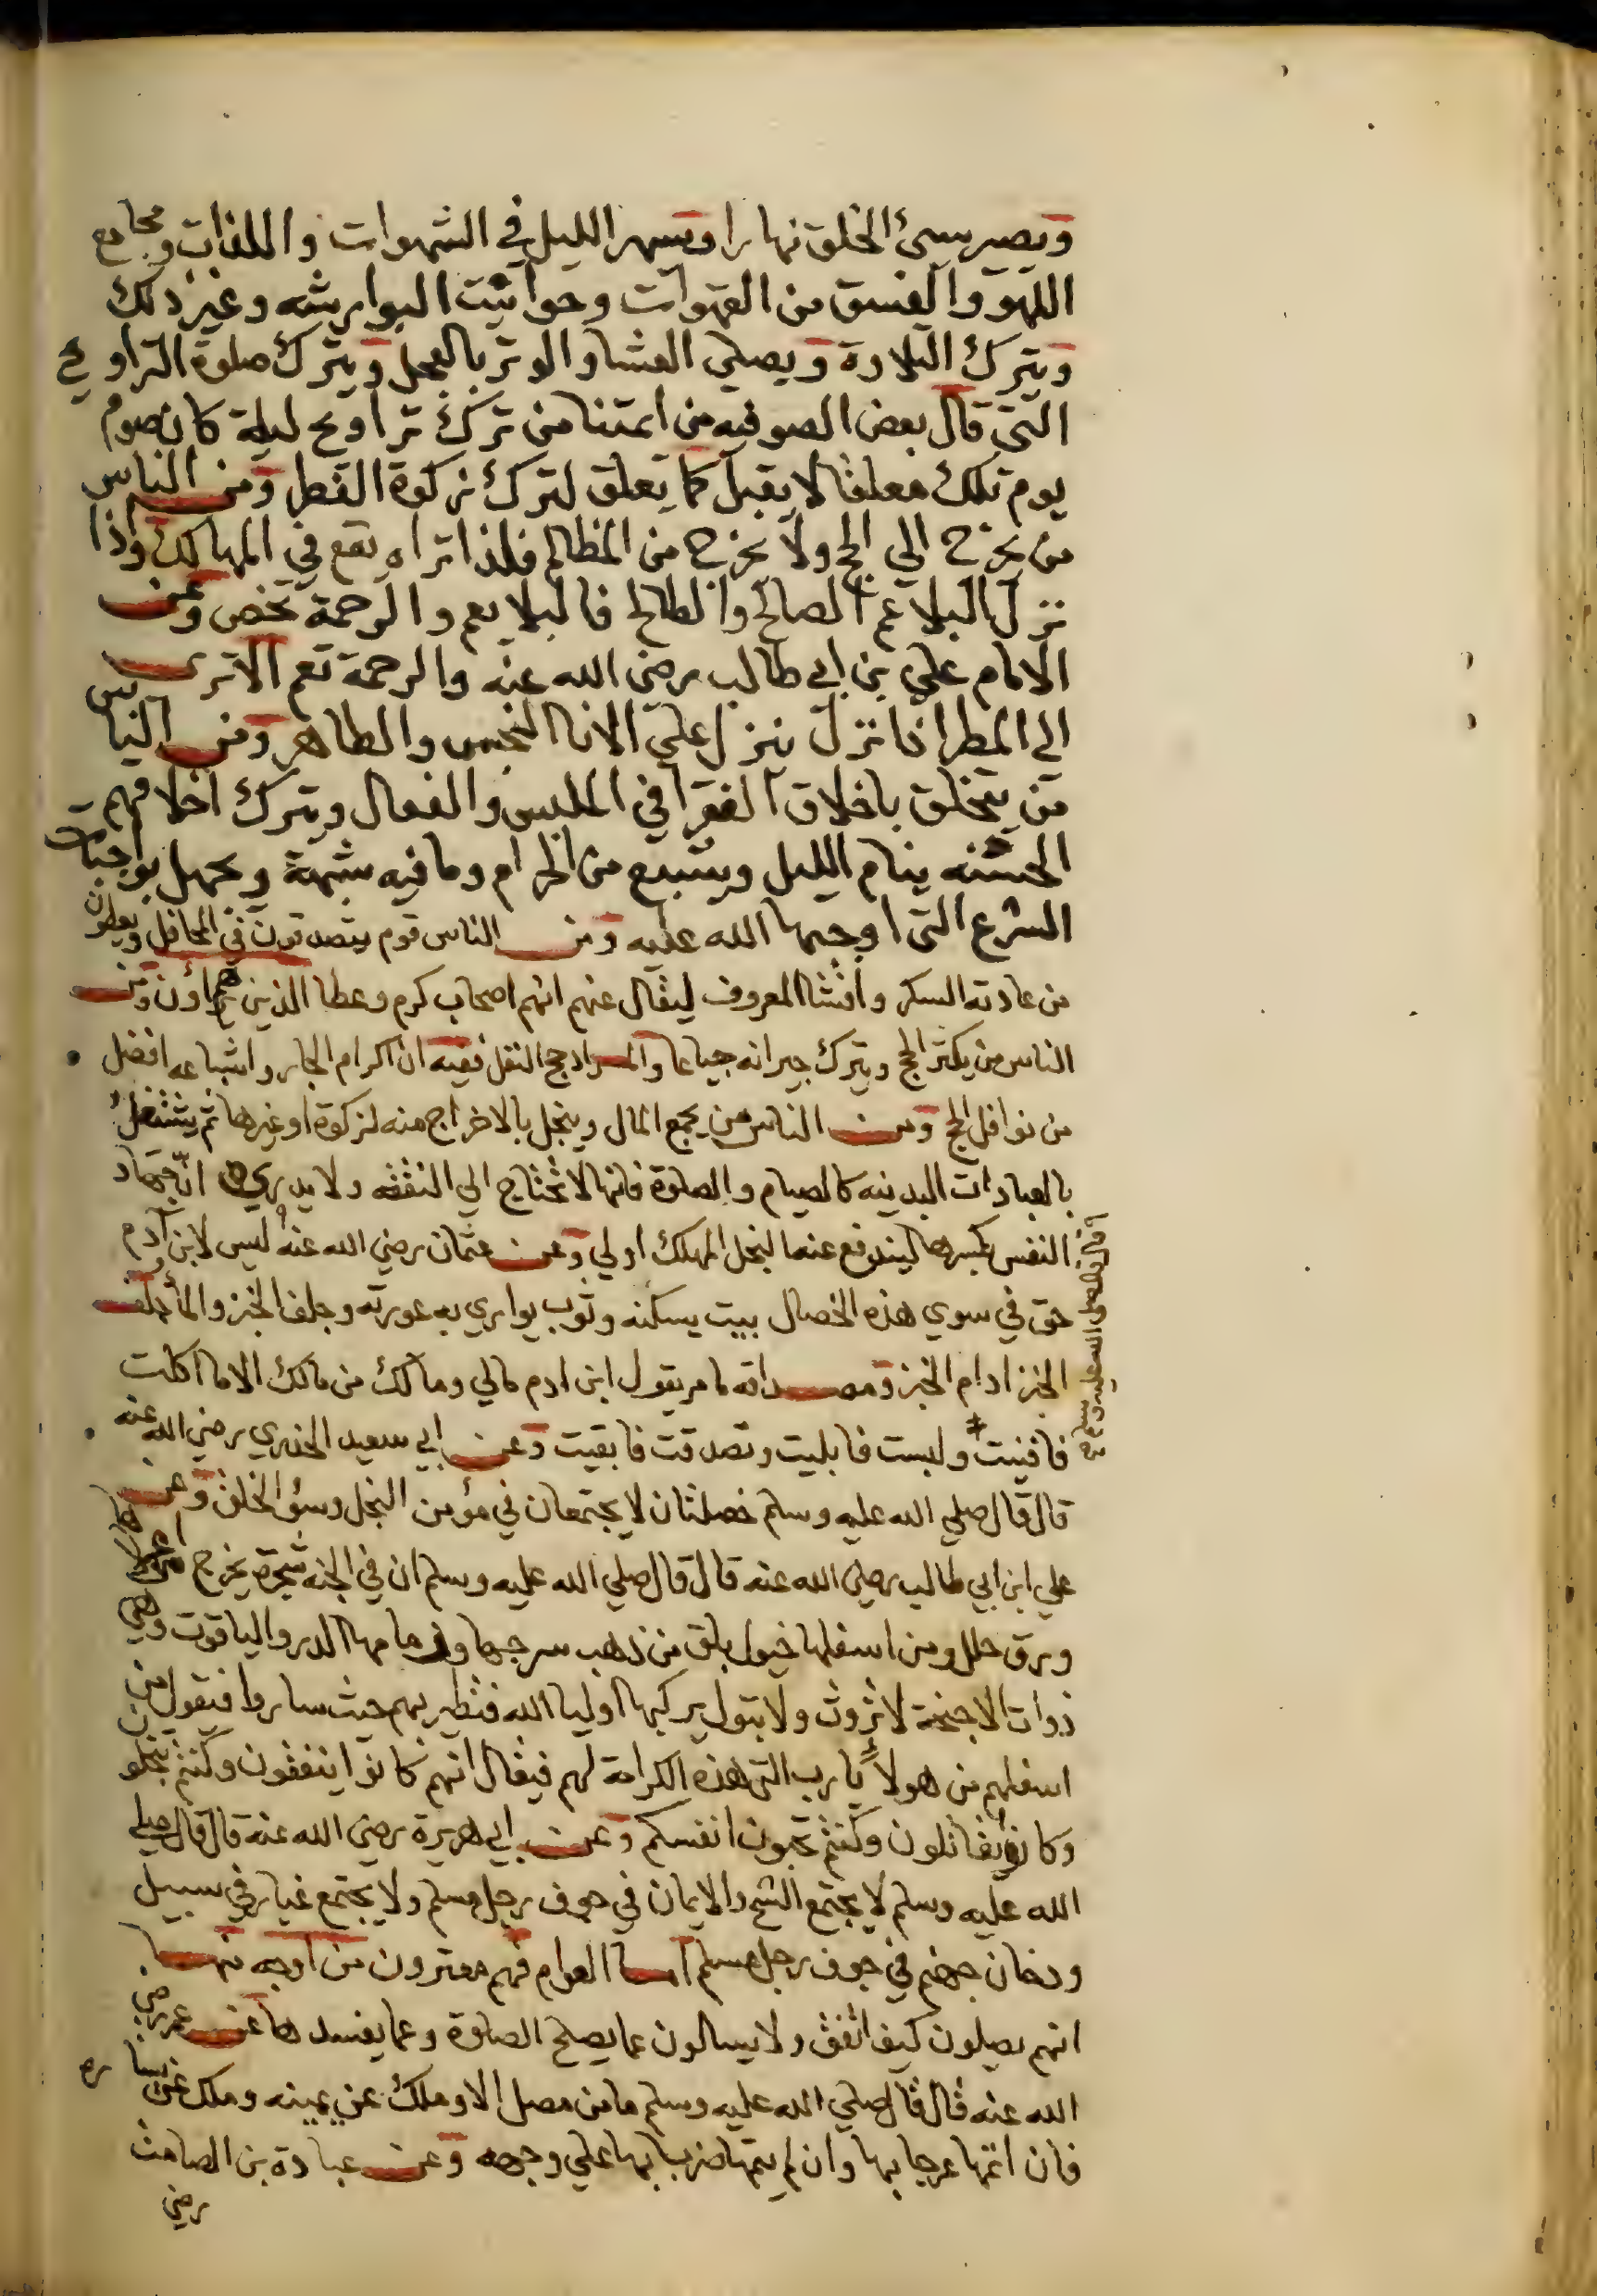 ويصير سيئ الخلق نهارا ويسهر الليل في الشهوات والملذات ومجامع
اللهو والفسق من القهوات وحوانيت البوارشه وغير ذلك
ويترك التلاوة ويصلي العشا والوتر بالعجل ويترك صلوة التراويح
التي قال بعض الصوفيه من ائمتنا من ترك تراويح ليلة كان صوم
يوم تلك معلقا لا يقبل كما يعلق لترك زكوة الفطر ومن الناس
من يخرج الي الحج ولا يخرج من المظالم فلذا تراه يقع في المهالك واذا
نزل البلا عم الصالح والطالح فالبلا يعم والرحمة تخص وعن
الامام علي بن ابي طالب رضي الله عنه والرحمة تعم الا تري
الي المطر اذا نزل ينزل علي الانا النجس والطاهر ومن الناس
من يتخلق باخلاق الفقرا في الملبس والفعال ويترك اخلاقهم
الحسنه ينام الليل ويشبع من الحرام وما فيه شبهة ويجهل بواجبات
الشرع التي اوجبها الله عليه ومن الناس قوم يتصدقون في المحافل ويعطون
من عادته السكر وافشا المعروف ليقال عنهم انهم اصحاب كرم وعطا الذين هم يراؤن ومن
الناس من يكثر الحج ويترك جيرانه جياعا والمراد حج النفل ففيه ان اكرام الجار واشباعه افضل
من نوافل الحج ومن الناس من يجمع المال ويبخل بالاخراج منه لزكوة او غيرها ثم يشتغل
بالعبادات البدنيه كالصيام والصلوة فانها لا تحتاج الي النفقه ولا يدري ان جهاد
النفس بكسرها ليندفع عنها البخل المهلك اولي وعن عثمان رضي الله عنه ليس لابن آدم
حق في سوي هذه الخصال بيت يسكنه وثوب يواري به عورته وجلف الخبز والمأ جلف
الخبز ادام الخبز ومصداقه ما مر يقول ابن ادم مالي ومالك من مالك الا ما اكلت
فافنيت ولبست فابليت وتصدقت فابقيت وعن ابي سعيد الخدري رضي الله عنه
قال قال صلي الله عليه وسلم خصلتان لا يجتمعان في مؤمن البخل وسؤ الخلق وعن
علي ابن ابي طالب رضي الله عنه قال قال صلي الله عليه وسلم ان في الجنه شجرة يخرج من اعلاها
ورق حلل ومن اسفلها خيول بلق من ذهب سرجها وزمامها الدر والياقوت وهي
ذوات الاجنحة لا تروث ولا تبول يركبها اوليا الله فتطير بهم حيث ساروا فيقول من
اسفلهم من هولاء يا رب التي هذه الكرامة لهم فيقال انهم كانوا ينفقون وكنتم تبخلون
وكانوا يقاتلون وكنتم تحبون انفسكم وعن ابي هريرة رضي الله عنه قال قال صلي
الله عليه وسلم لا يجتمع الشح والايمان في جوف رجل مسلم ولا يجتمع غبار في سبيل
ودخان جهنم في جوف رجل مسلم اما العوام فهم مغترون من اوجه منها
انهم يصلون كيف اتفق ولا يسالون عما يصلح الصلوة وعما يفسدها عن عمر رضي
الله عنه قال قال صلي الله عليه وسلم ما من مصل الا وملك عن يمينه وملك عن يساره
فان اتمها عرجا بها وان لم يتمها ضربا بها علي وجهه وعن عبادة بن الصامت
رضي